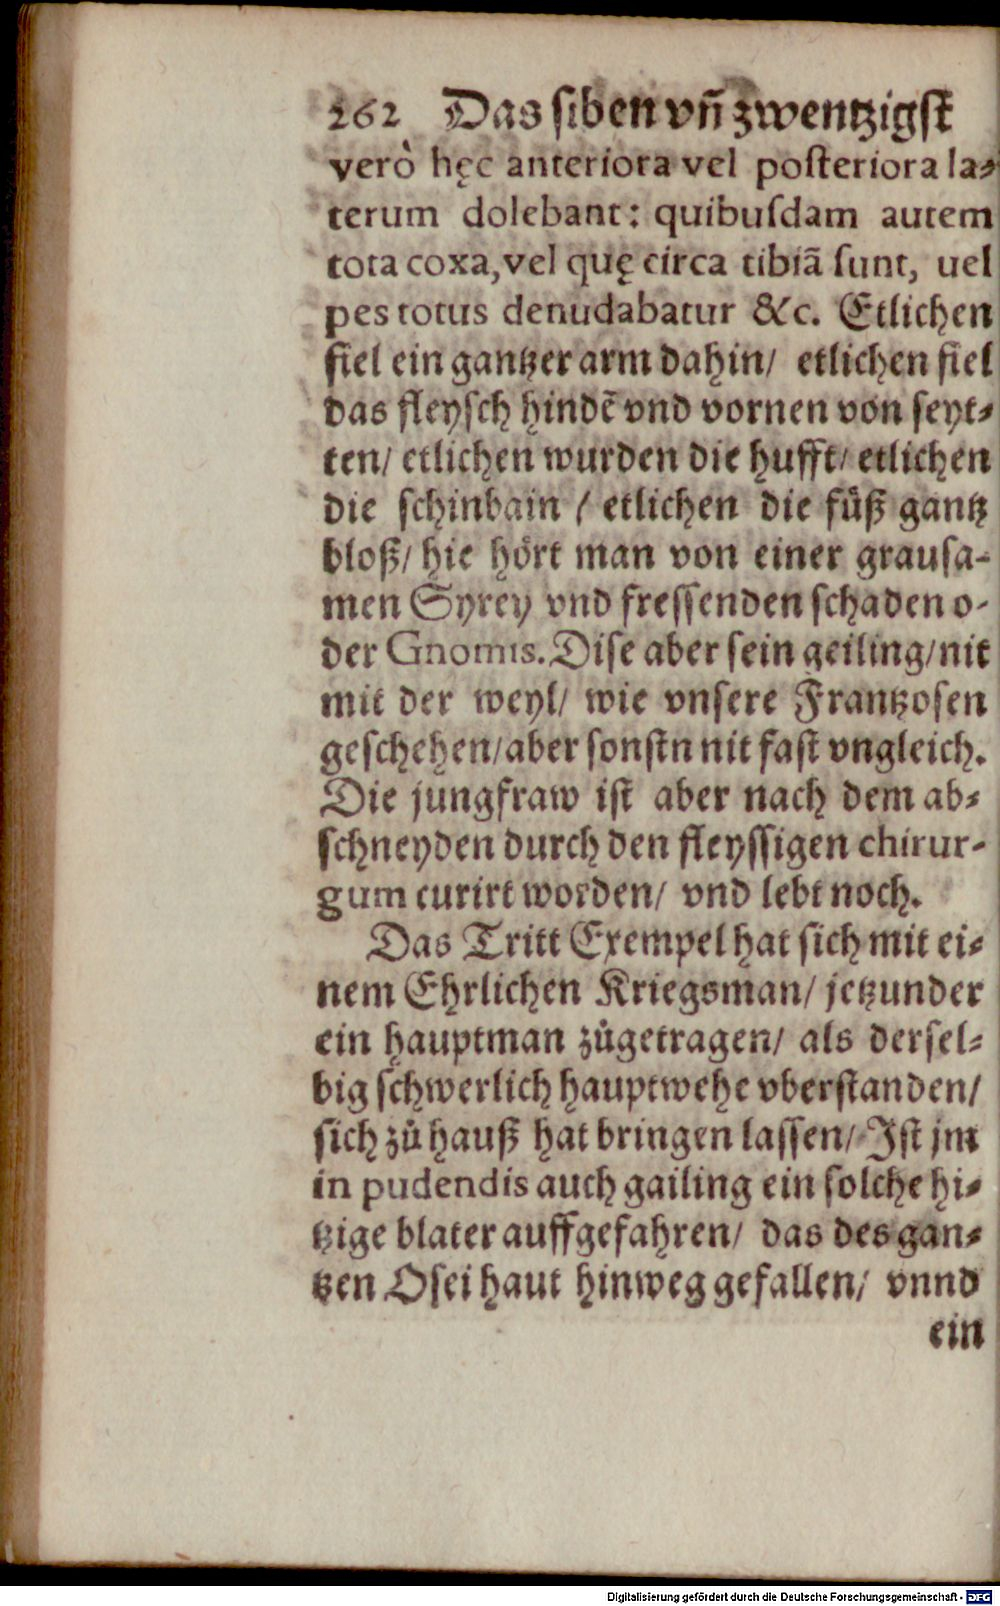 262 Das siben vñ zwentzigst
verò hęc anteriora vel posteriora la⸗
terum dolebant: quibusdam autem
tota coxa, vel quę circa tibiã sunt, uel
pes totus denudabatur &c. Etlichen
fiel ein gantzer arm dahin/ etlichen fiel
das fleysch hindẽ vnd vornen von seyt⸗
ten/ etlichen wurden die hufft/ etlichen
die schinbain / etlichen die fuͤß gantz
bloß/ hie hoͤrt man von einer grausa-
men Syrey vnd fressenden schaden o-
der Gnomis. Dise aber sein geiling/ nit
mit der weyl/ wie vnsere Frantzosen
geschehen/ aber sonstn nit fast vngleich.
Die jungfraw ist aber nach dem ab⸗
schneyden durch den fleyssigen chirur-
gum curirt worden/ vnd lebt noch.
Das Tritt Exempel hat sich mit ei⸗
nem Ehrlichen Kriegsman/ jetzunder
ein hauptman zůgetragen/ als dersel⸗
big schwerlich hauptwehe vberstanden/
sich zů hauß hat bringen lassen/ Ist jm
in pudendis auch gailing ein solche hi⸗
tzige blater auffgefahren/ das des gan⸗
tzen Osei haut hinweg gefallen/ vnnd
ein
Digitalisierung gefördert durch die Deutsche Forschungsgemeinschaft - DFG